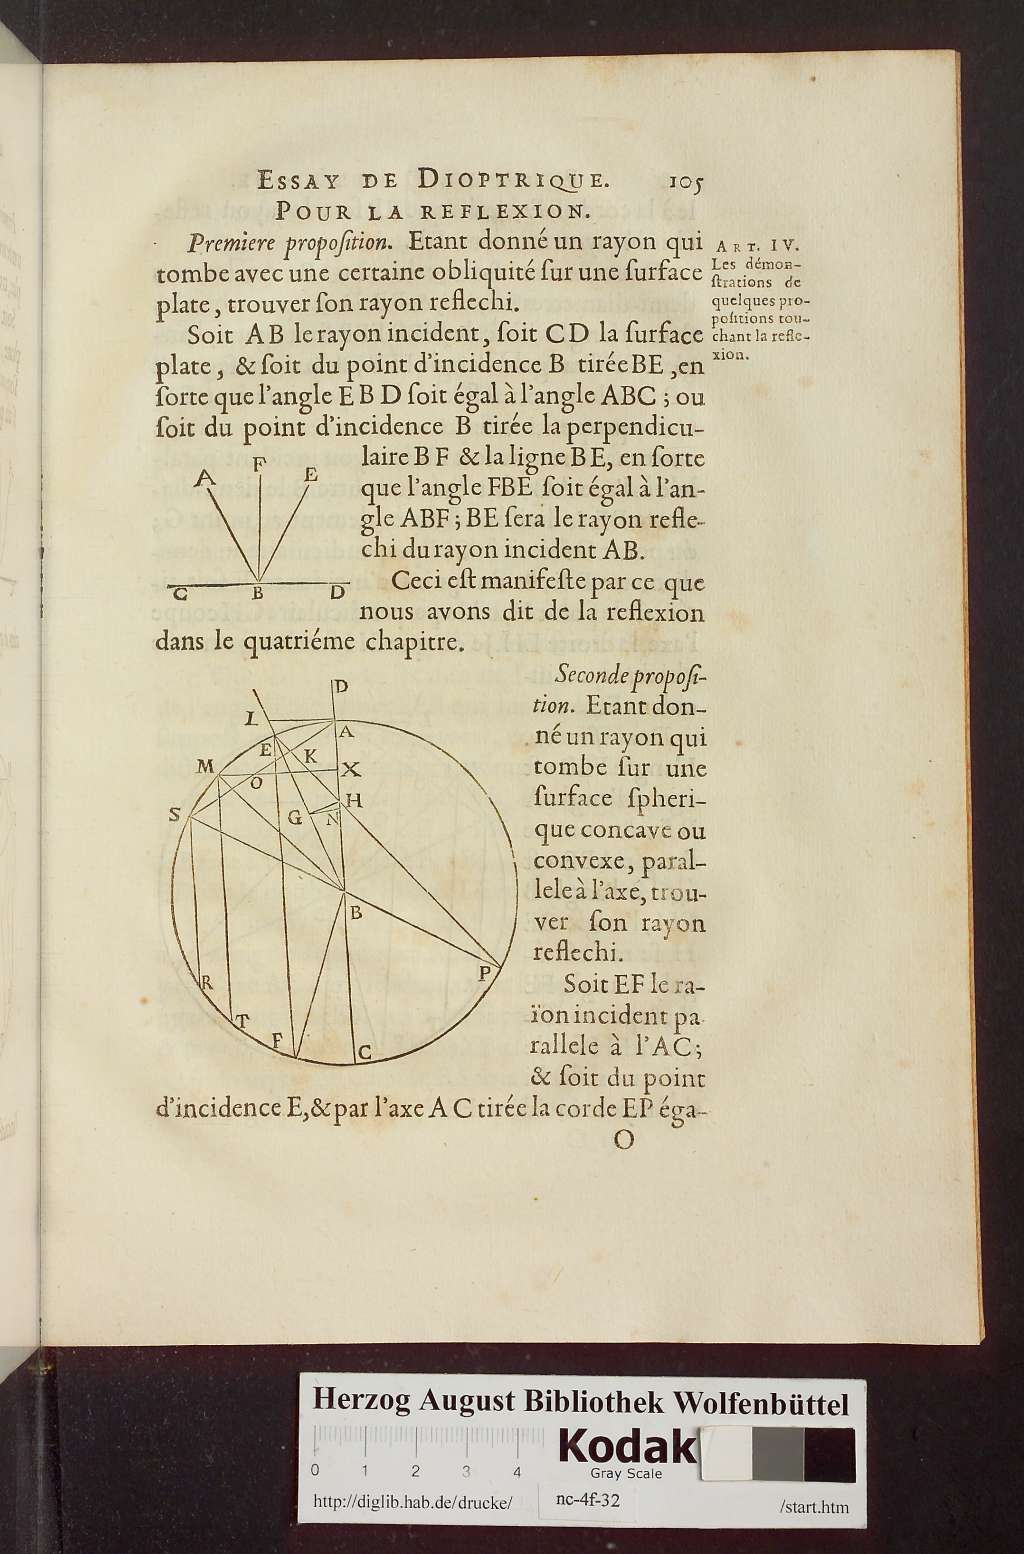 ESSAY DE DIOPTRIQUE. 105
POUR LA REFLEXION.
Premiere propoſition. Etant donné un rayon qui
tombe avec une certaine obliquité ſur une ſurface
plate, trouver ſon rayon reflechi.
ART. IV.
Les démon-
ſtrations de
quelques pro-
poſitions tou-
chant la refle-
xion.
Soit AB le rayon incident, ſoit CD la ſurface
plate, & ſoit du point d'incidence B tirée BE, en
ſorte que l'angle EBD ſoit égal à l'angle ABC; ou
ſoit du point d'incidence B tirée la perpendicu-
laire BF & la ligne BE, en ſorte
que l'angle FBE ſoit égal à l'an-
gle ABF; BE ſera le rayon refle-
chi du rayon incident AB.
Ceci eſt manifeſte par ce que
nous avons dit de la reflexion
dans le quatriéme chapitre.
A F E
C B D
Seconde propoſi-
tion. Etant don-
né un rayon qui
tombe ſur une
ſurface ſpheri-
que concave ou
convexe, paral-
lele à l'axe, trou-
ver ſon rayon
reflechi.
Soit EF le ra-
ïon incident pa-
rallele à l'AC;
& ſoit du point
d'incidence E, & par l'axe AC tirée la corde EP éga-
O
D
L
A
E
K
M
X
O
H
S
G
N
B
P
R
T
F
C
Herzog August Bibliothek Wolfenbüttel
Kodak
Gray Scale
0 1 2 3 4
http://diglib.hab.de/drucke/ nc-4f-32 /start.htm